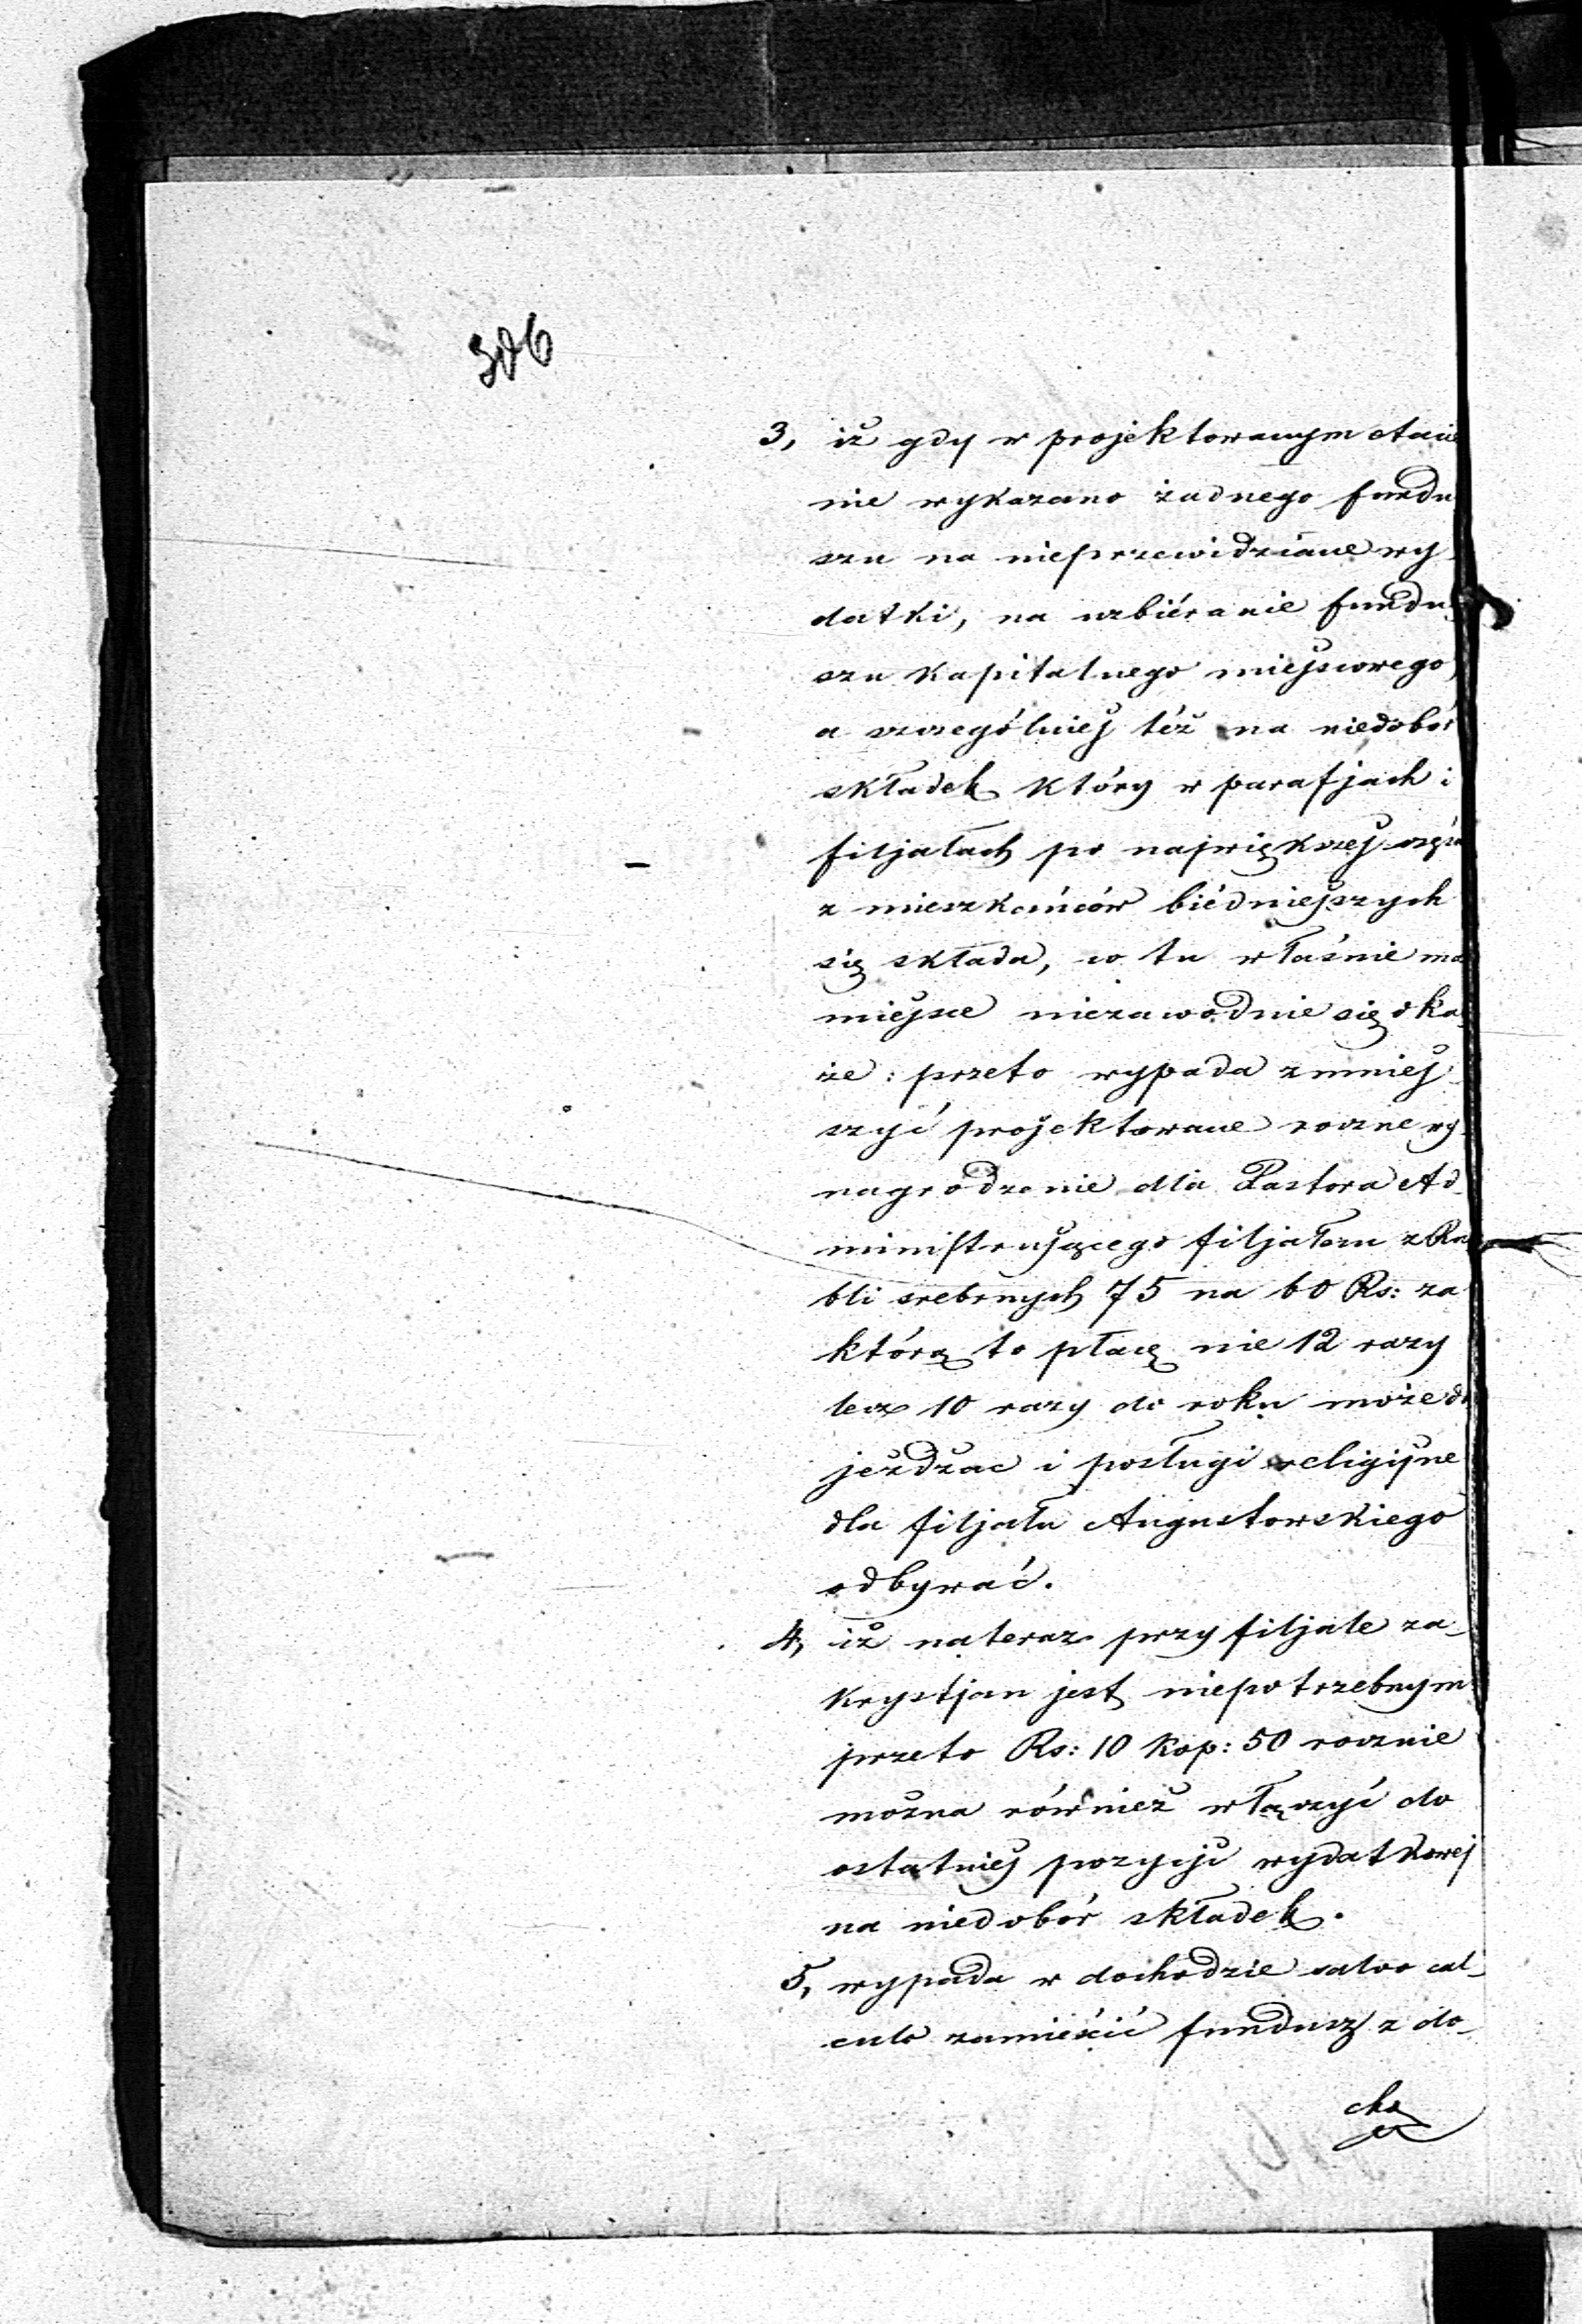 306
3, iż gdy w projektowanym etacie
nie wykazano żadnego fundu
szu na nieprzewidziane wy-
datki, na uzbiéranie fundu-
szu kapitalnego miejscowego,
a szczególniej téż na niedobór
składek który w parafjach i
filjałach po największej części
z mieszkańców biédniejszych
się składa, co tu właśnie ma
miejsce niezawodnie się oka-
że: przeto wypada zmniej-
szyć projektowane roczne wy-
nagrodzenie dla Pastora Ad-
ministrującego filjałem z Ru
bli srebrnych 75 na 60 Rs: za
którą to płacę nie 12 razy
lecz 10 razy do roku może do
jeżdżac i posługi religijne
dla filjału Augustowskiego
odbywać.
4, iż na teraz przy filjale za-
krystjan jest niepotrzebnym
przeto Rs: 10 kop: 50 rocznie
można również włączyć do
ostatniej pozycji wydatkowej
na niedobór składek.
5, wypada w dochodzie salvo cal-
culo zamieścić fundusz z do-
cho